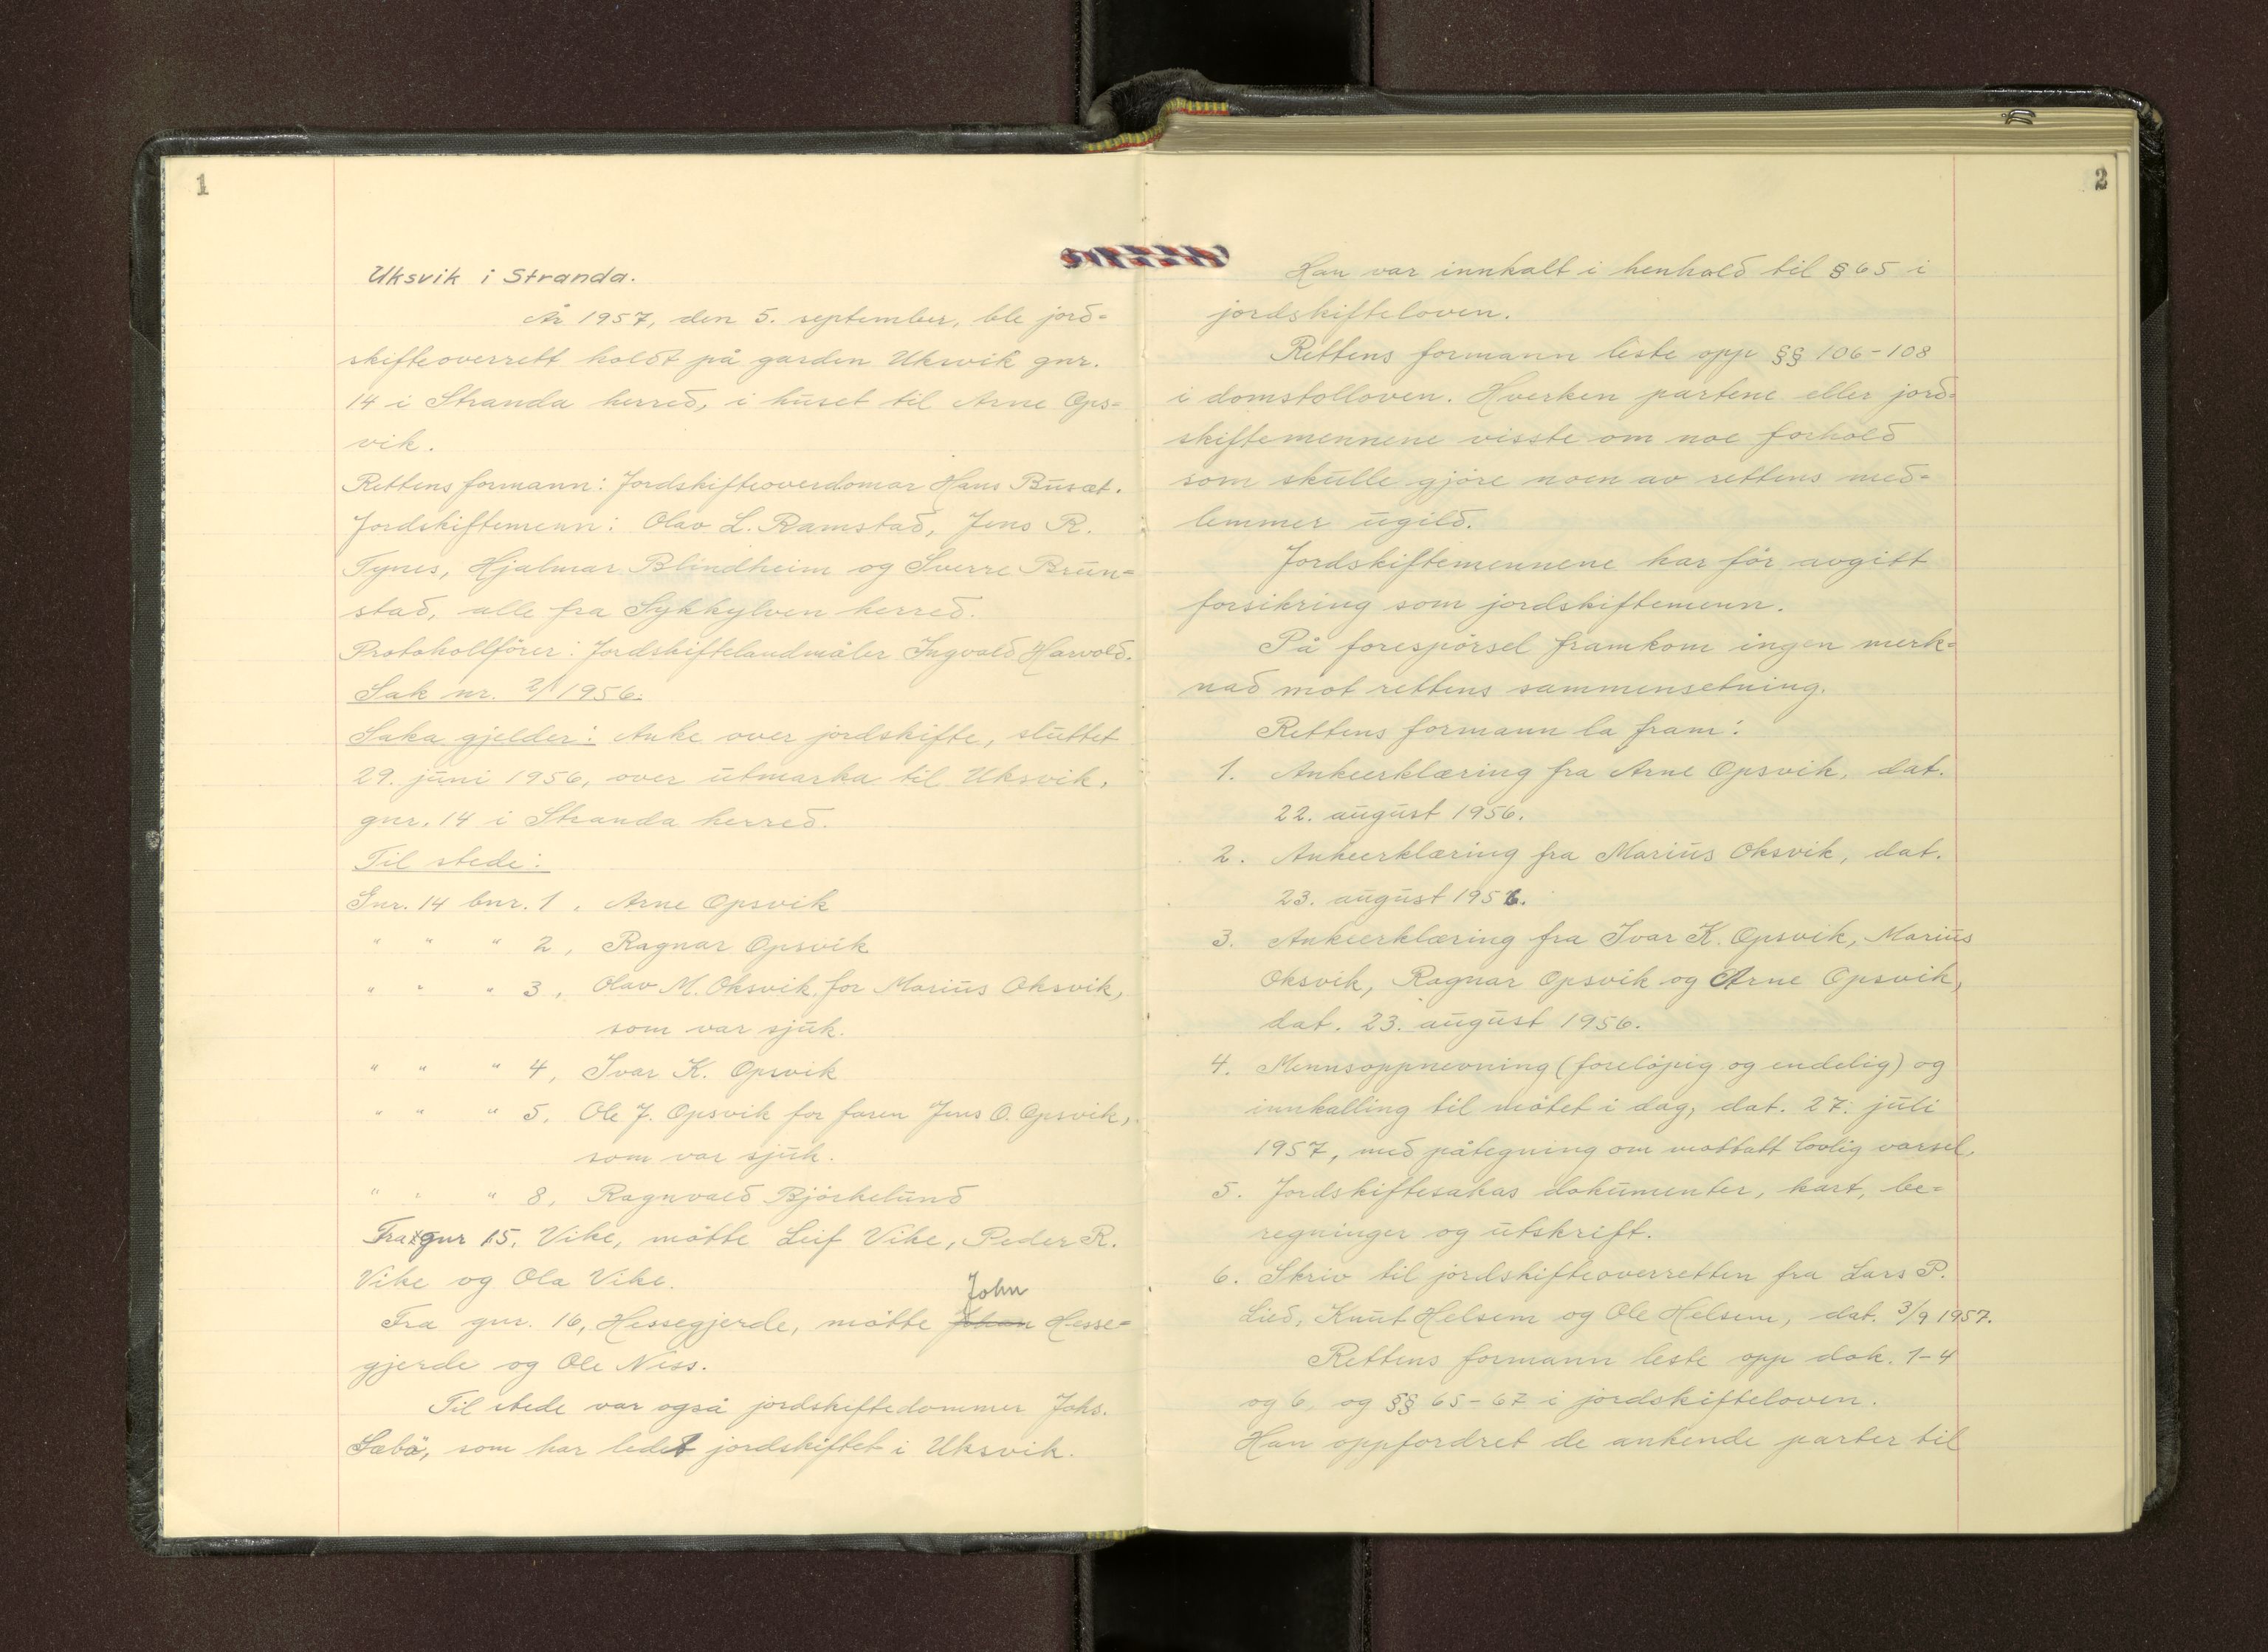 1
Uksvik i Stranda.
År 1957, den 5. september, ble jord=
skifteoverrett holdt på garden Uksvik gnr.
14 i Stranda herred, i huset til Arne Ops=
vik.
Rettens formann: Jordskifteoverdomar Hans Busæt.
Jordskiftemenn: Olav L. Ramstad, Jens R.
Tynes, Hjalmar Blindheim og Sverre Brun=
stad, alle fra Sykkylven herred.
Protokollfører: Jordskiftelandmåler Ingvald Harvold.
Sak nr. 2/1956.
Saka gjelder: Anke over jordskifte, sluttet
29. juni 1956, over utmarka til Uksvik,
gnr. 14 i Stranda herred.
Til stede:
Gnr. 14 bnr. 1, Arne Opsvik
" " " 2, Ragnar Opsvik
" " " 3, Olav M. Oksvik, for Marius Oksvik,
som var sjuk.
" " " 4, Ivar K. Opsvik
" " " 5, Ole J. Opsvik for faren Jens O. Opsvik,
som var sjuk.
" " " 8, Ragnvald Bjørkelund
Fra gnr 15, Vike, møtte Leif Vike, Peder R.
Vike og Ola Vike.
John
Fra gnr. 16, Hessegjerde, møtte Johan Hesse=
gjerde og Ole Ness.
Til stede var også jordskiftedommer Johs.
Sæbø, som har ledet jordskiftet i Uksvik.
2
Han var innkalt i henhold til § 65 i
jordskifteloven.
Rettens formann leste opp §§ 106-108
i domstolloven. Hverken partene eller jord=
skiftemennene visste om noe forhold
som skulle gjøre noen av rettens med=
lemmer ugild.
Jordskiftemennene har før avgitt
forsikring som jordskiftemenn.
På forespørsel framkom ingen merk=
nad mot rettens sammensetning.
Rettens formann la fram:
1. Ankeerklæring fra Arne Opsvik, dat.
22. august 1956.
2. Ankeerklæring fra Marius Oksvik, dat.
23. august 1956.
3. Ankeerklæring fra Ivar K. Opsvik, Marius
Oksvik, Ragnar Opsvik og Arne Opsvik,
dat. 23. august 1956.
4. Mennsoppnevning (foreløpig og endelig) og
innkalling til møtet i dag, dat. 27. juli
1957, med påtegning om mottatt lovlig varsel.
5. Jordskiftesakas dokumenter, kart, be=
regninger og utskrift.
6. Skriv til jordskifteoverretten fra Lars P.
Lied, Knut Helsem og Ole Helsem, dat. 3/9 1957.
Rettens formann leste opp dok. 1-4
og 6, og §§ 65-67 i jordskifteloven.
Han oppfordret de ankende parter til